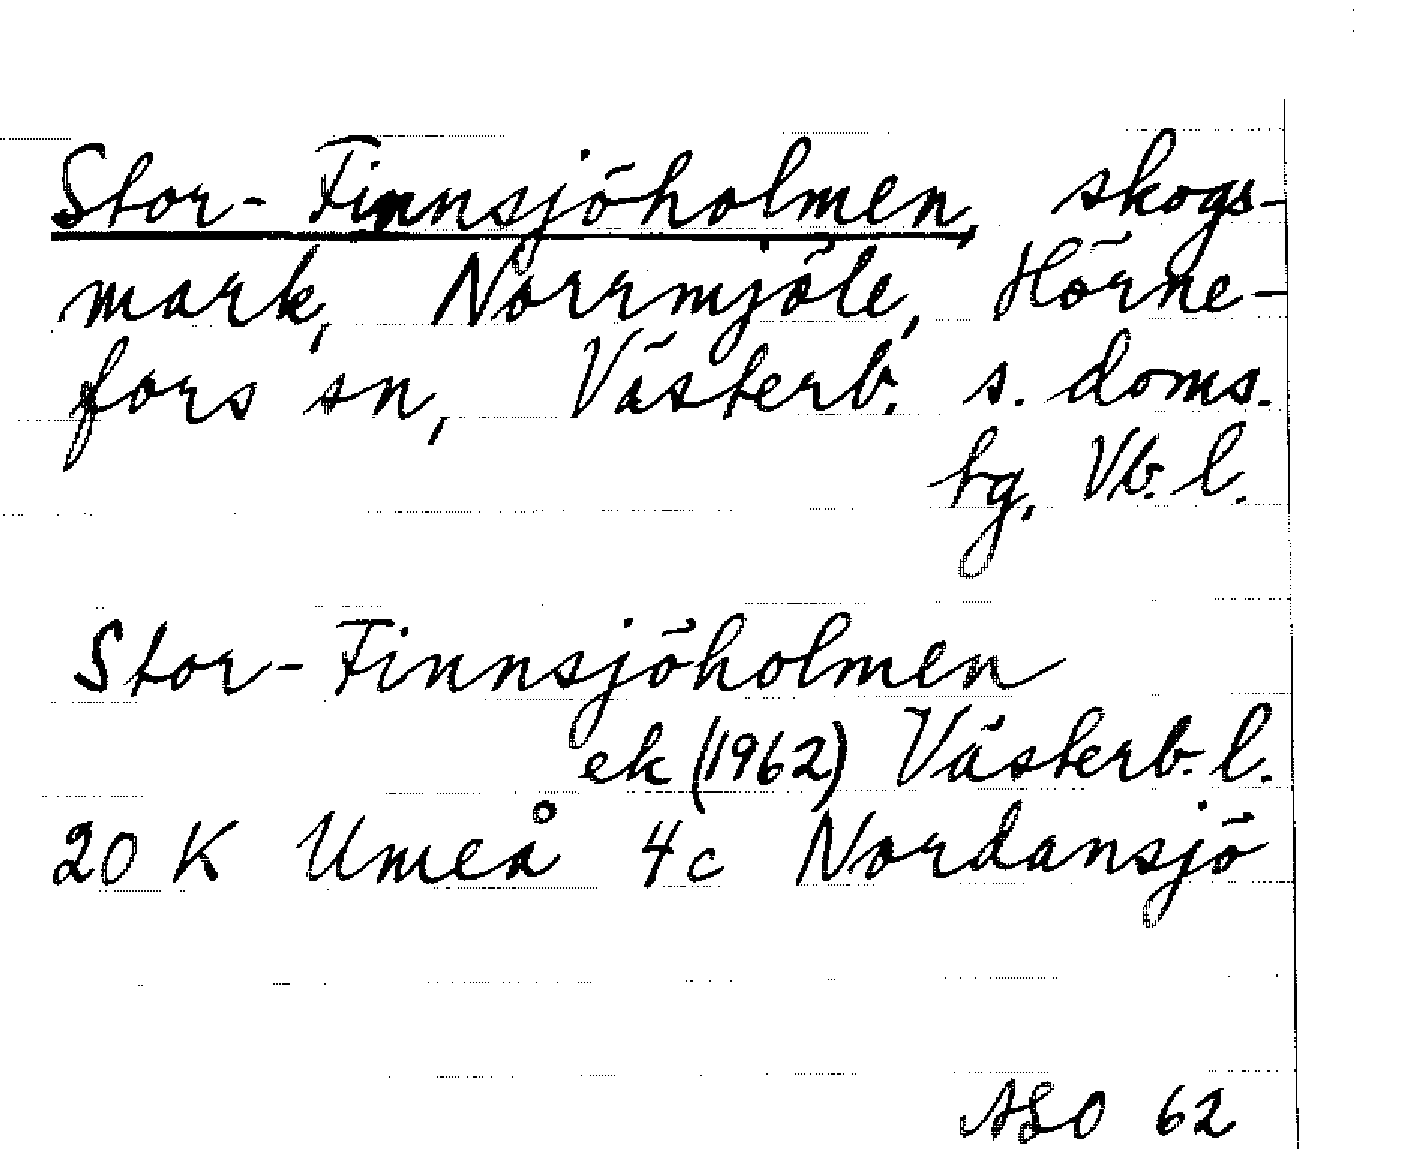 Stor-Finnsjöholmen, skogs-
mark, Norrmjöle, Hörne-
fors sn, Västerb. s. doms.
tg, Vb. l.
Stor-Finnsjöholmen
ek (1962) Västerb. l.
20 K Umeå 4c Nordansjö
ASO 62